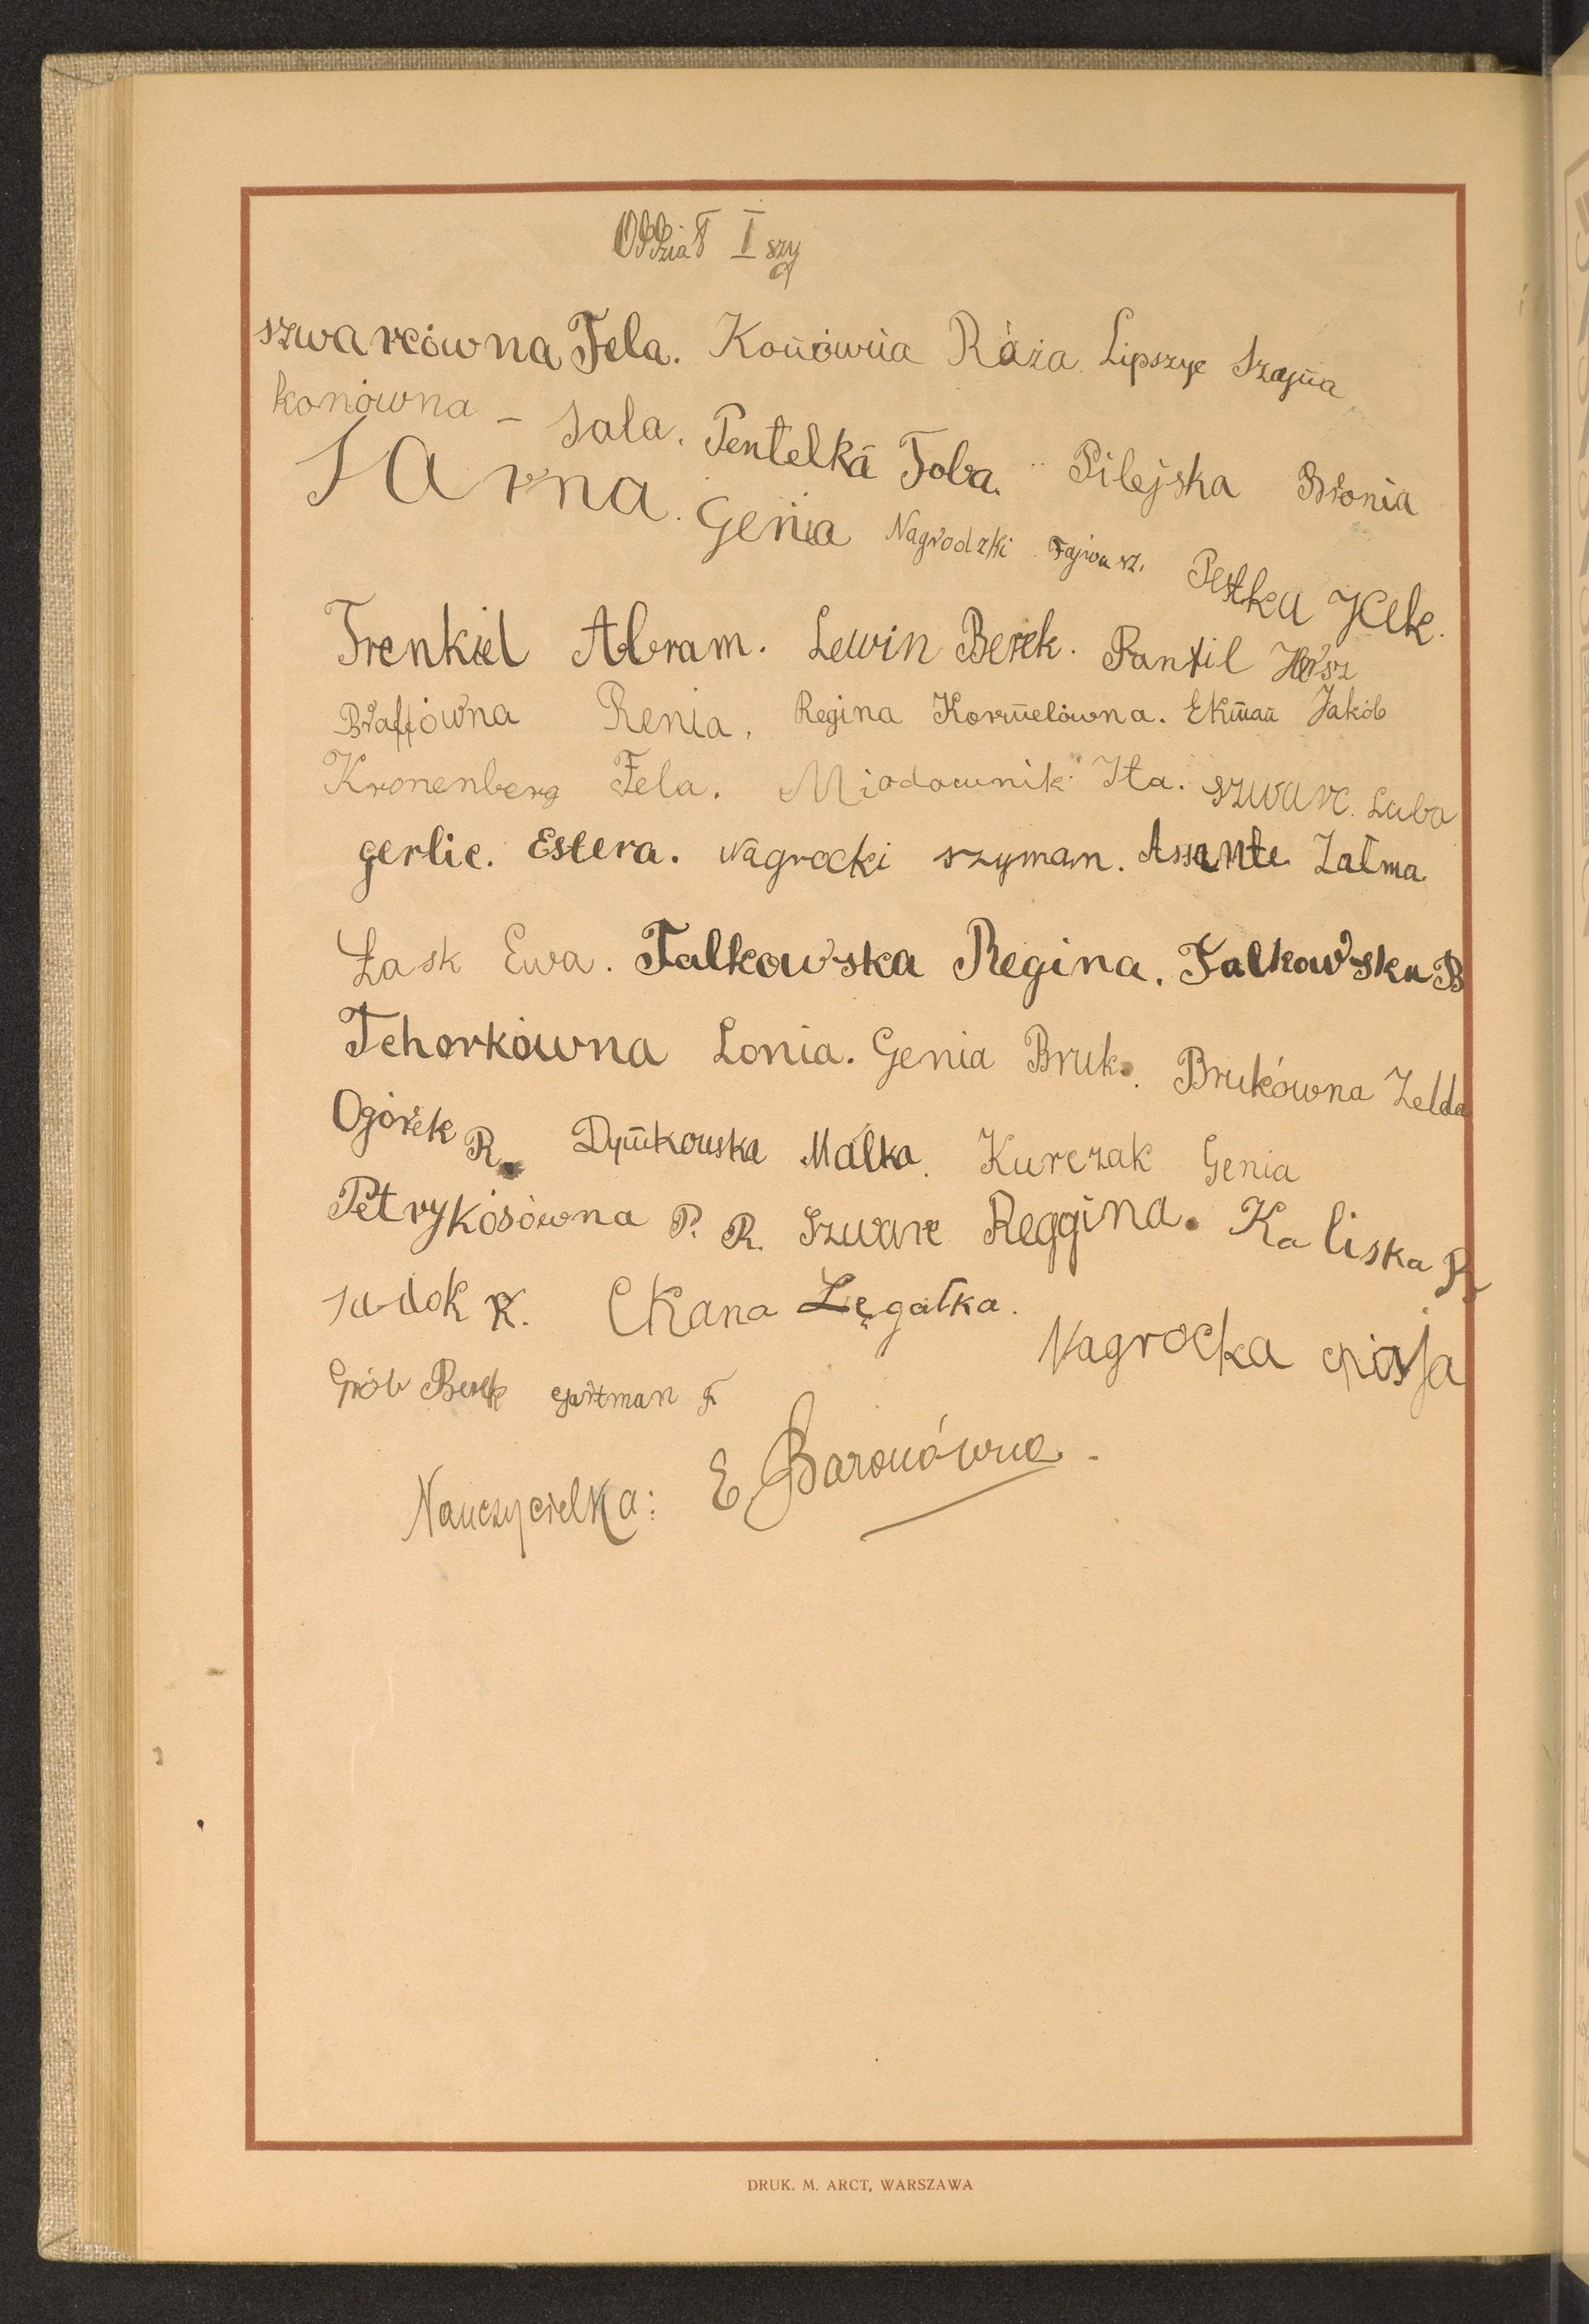 Oddział I szy
szwarcówna Fela. Konówna Róża Lipszyc Szajna
konówna - Sala. Pentelka Toba. Pilejska Bronia
Sarna. Genia Nagrodzki Fajwusz. Pestka Icek.
Frenkiel Abram. Lewin Berek. Pantil Hersz
Braffówna Renia, Regina Kormelówna. Ekman Jakób
Kronenberg Fela. Miodownik Ita. szwarc. Luba
gerlic. Estera. Nagrocki szymam. Assante Załma
Łask Ewa. Falkowska Regina. Falkowska B
Tchorkówna Lonia. Genia Bruk. Brukówna Zelda
Ogórek R. Dymkowska Malka. Kurczak Genia
Petrykosówna P. R. Szwarc Reggina. Kaliska R
sadok R. Chana Łęgatka.
Nagrocka
Grób Berek F
Nauczycielka: E. Baronówna.
DRUK. M. ARCT, WARSZAWA